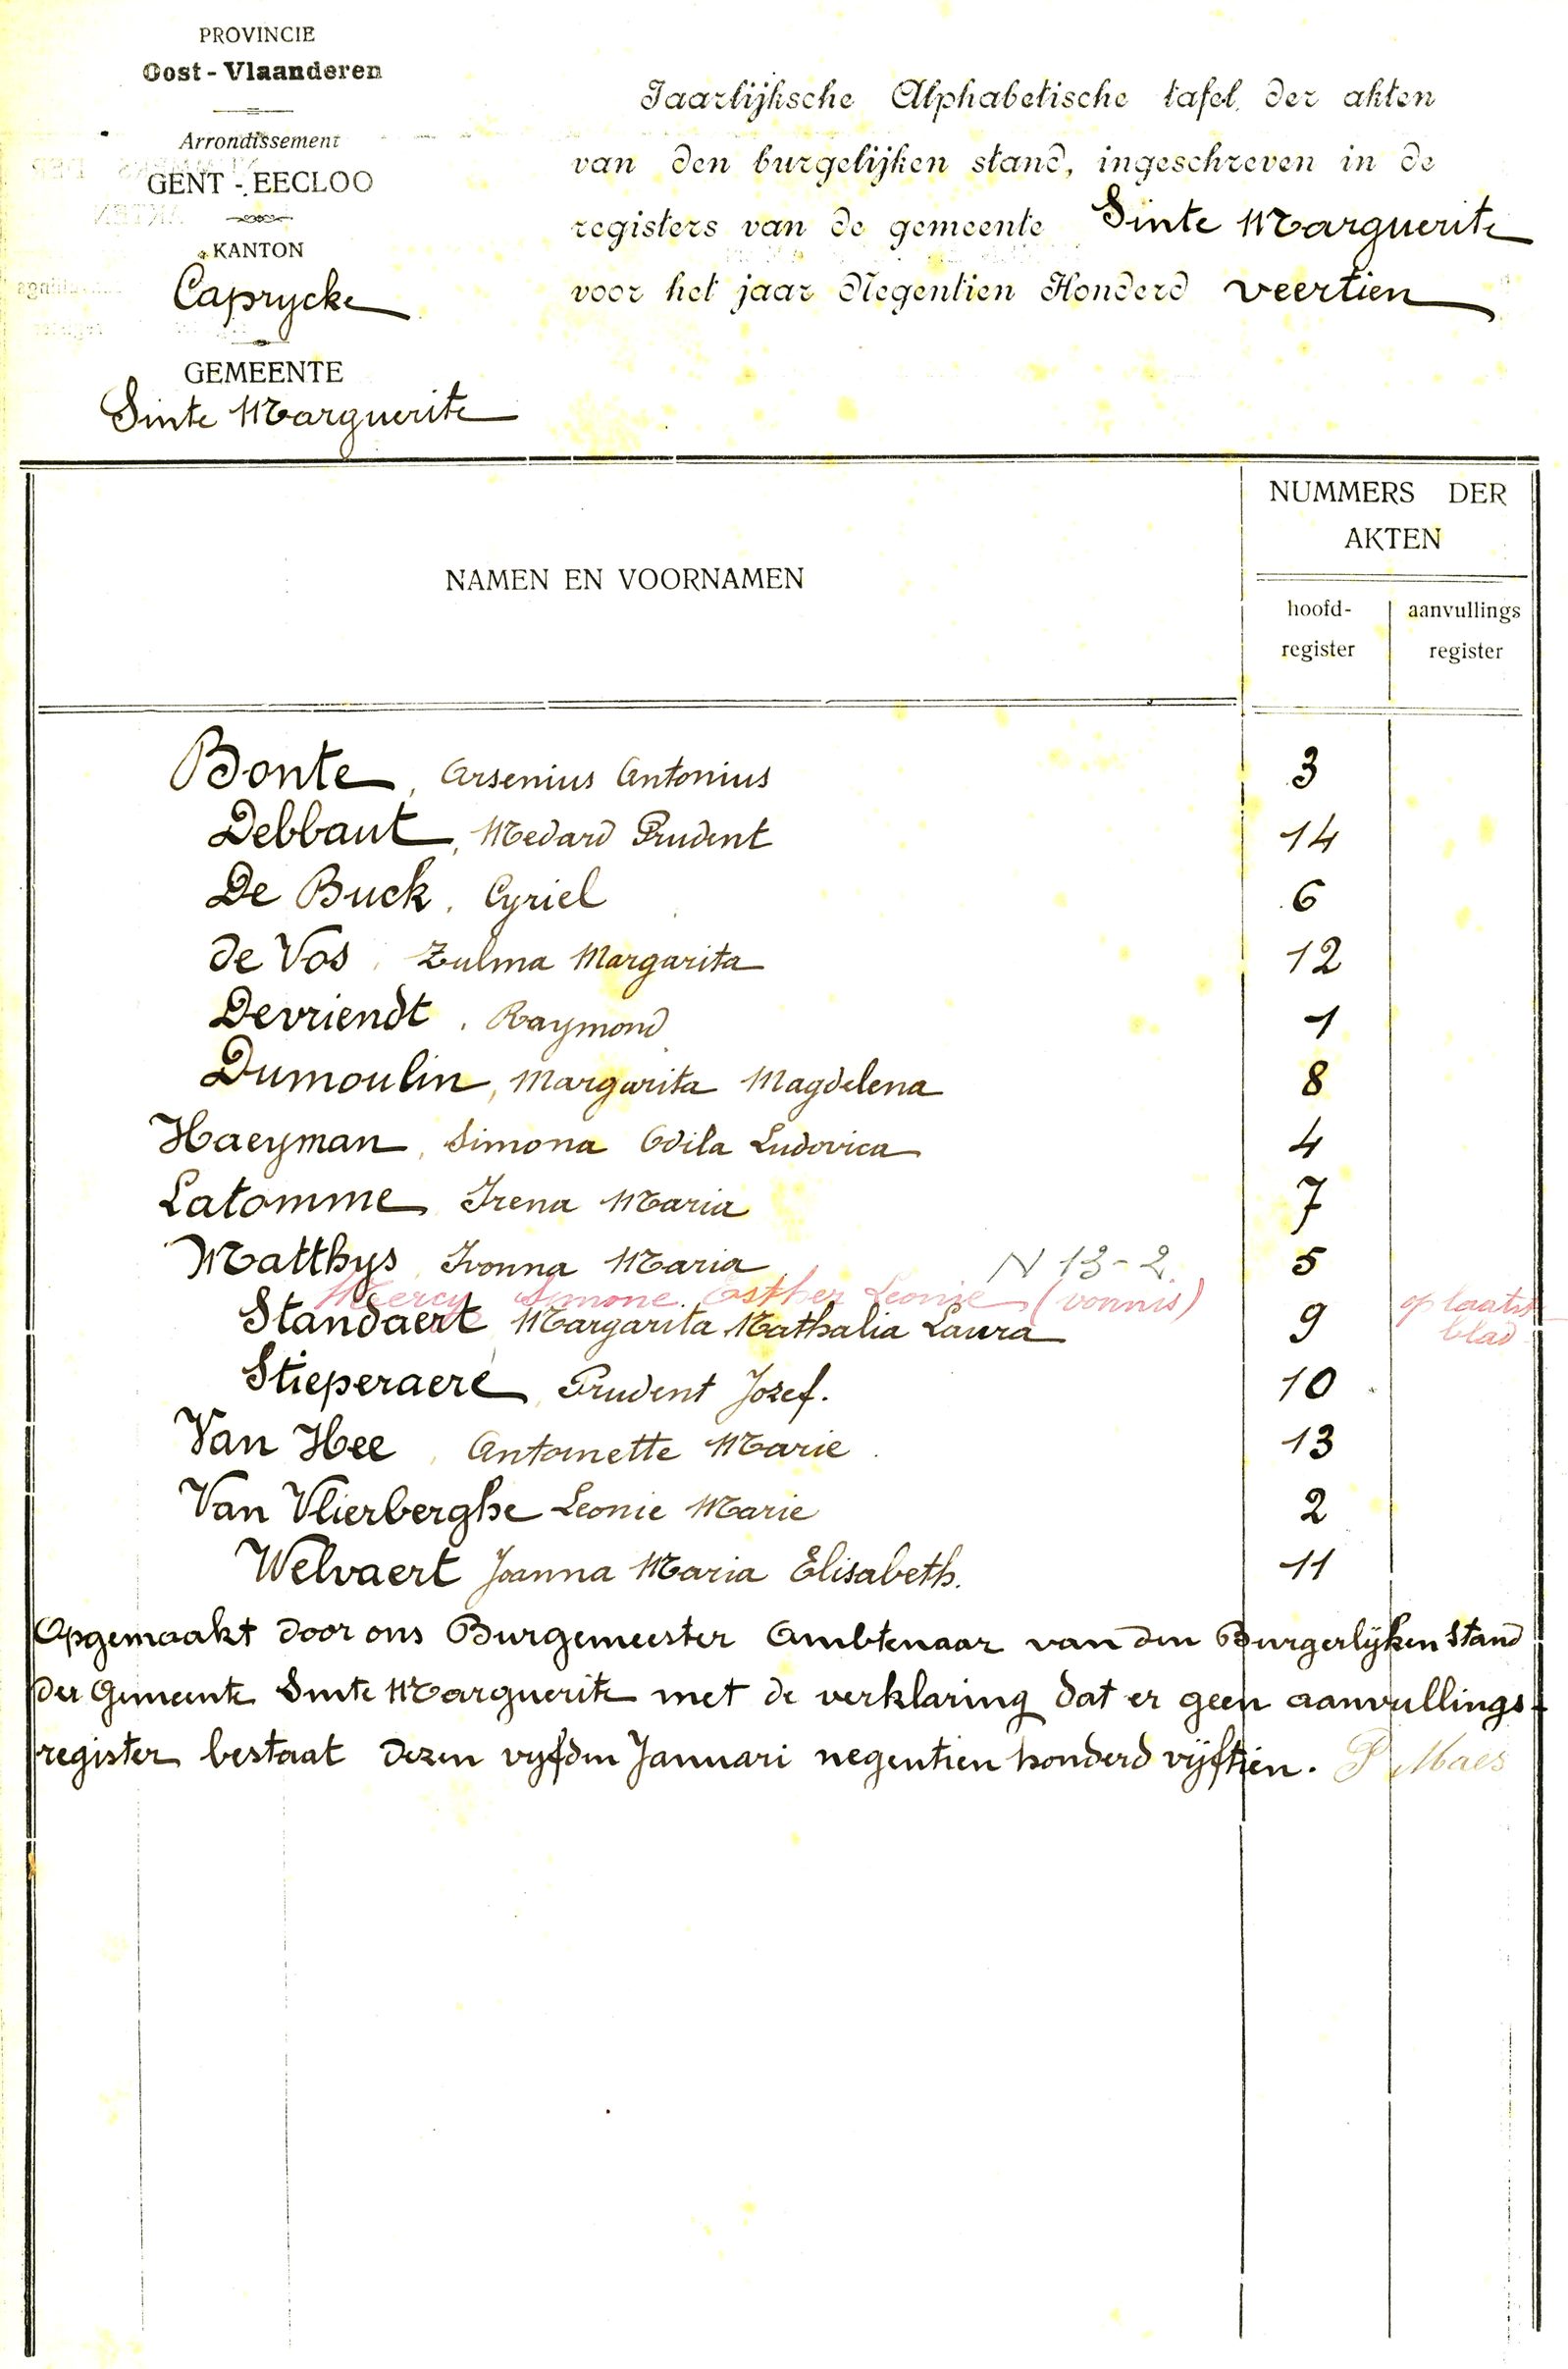 PROVINCIE
Oost-Vlaanderen
Arrondissement
GENT - EECLOO
KANTON
Caprycke
GEMEENTE
Sinte Marguerite
Jaarlijksche Alphabetische tafel der akten
van den burgelijken stand, ingeschreven in de
registers van de gemeente Sinte Marguerite
voor het jaar Negentien Honderd veertien
NAMEN EN VOORNAMEN
NUMMERS DER
AKTEN
hoofd- aanvullings
register register
Bonte, Arsenius Antonius 3
Debbaut, Medard Prudent 14
De Buck, Cyriel 6
de Vos, Zulma Margarita 12
Devriendt, Raymond 1
Dumoulin, Margarita Magdelena 8
Haeyman, Simona Odila Ludovica 4
Latomme Irena Maria 7
Matthys, Ivonna Maria N 13-2 5
Meercy Simone Esther Leonie (vonnis) op laatst blad
Standaert Margarita Nathalia Laura 9
Stieperaere, Prudent Jozef. 10
Van Hee, Antoinette Marie 13
Van Vlierberghe Leonie Marie 2
Welvaert Joanna Maria Elisabeth. 11
Opgemaakt door ons Burgemeester Ambtenaar van den Burgerlijken Stand
der Gemeente Sinte Marguerite met de verklaring dat er geen aanvullings-
register bestaat dezen vyfden Januari negentien honderd vijftien. P Maes